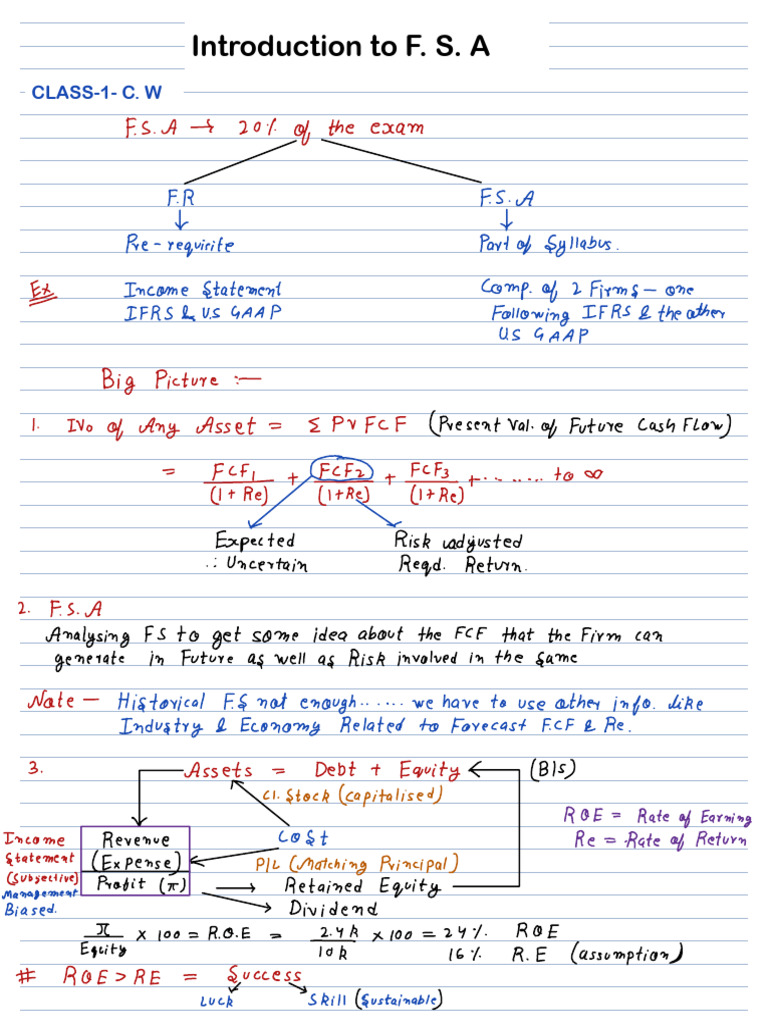 Introduction to F. S. A
CLASS-1- C. W
F.S.A → 20% of the exam
F.R F.S.A
↓ ↓
Pre-requirite Part of Syllabus.
Ex Income Statement Comp. of 2 Firms - one
IFRS & U.S GAAP Following IFRS & the other
U.S GAAP
Big Picture :-
1. IV₀ of Any Asset = Σ PV FCF (Present Val. of Future Cash Flow)
= FCF₁/(1+Re) + FCF₂/(1+Re) + FCF₃/(1+Re) +........to ∞
Expected Risk adjusted
∴ Uncertain Reqd. Return.
2. F.S.A
Analysing FS to get some idea about the FCF that the Firm can
generate in Future as well as Risk involved in the same
Note - Historical F.S not enough...... we have to use other info. like
Industry & Economy Related to Forecast F.CF & Re.
3. Assets = Debt + Equity (B/s)
Cl. Stock (capitalised)
ROE = Rate of Earning
Income Revenue Cost Re = Rate of Return
Statement (Expense) P/L (Matching Principal)
(Subjective) Profit (π) → Retained Equity
Management
Biased. → Dividend
π/Equity × 100 = R.O.E = 2.4k/10k × 100 = 24% ROE
16% R.E (assumption)
# ROE > RE = Success
Luck Skill (Sustainable)